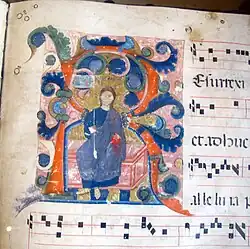 Esurrexi
et adhuc
alleluia p